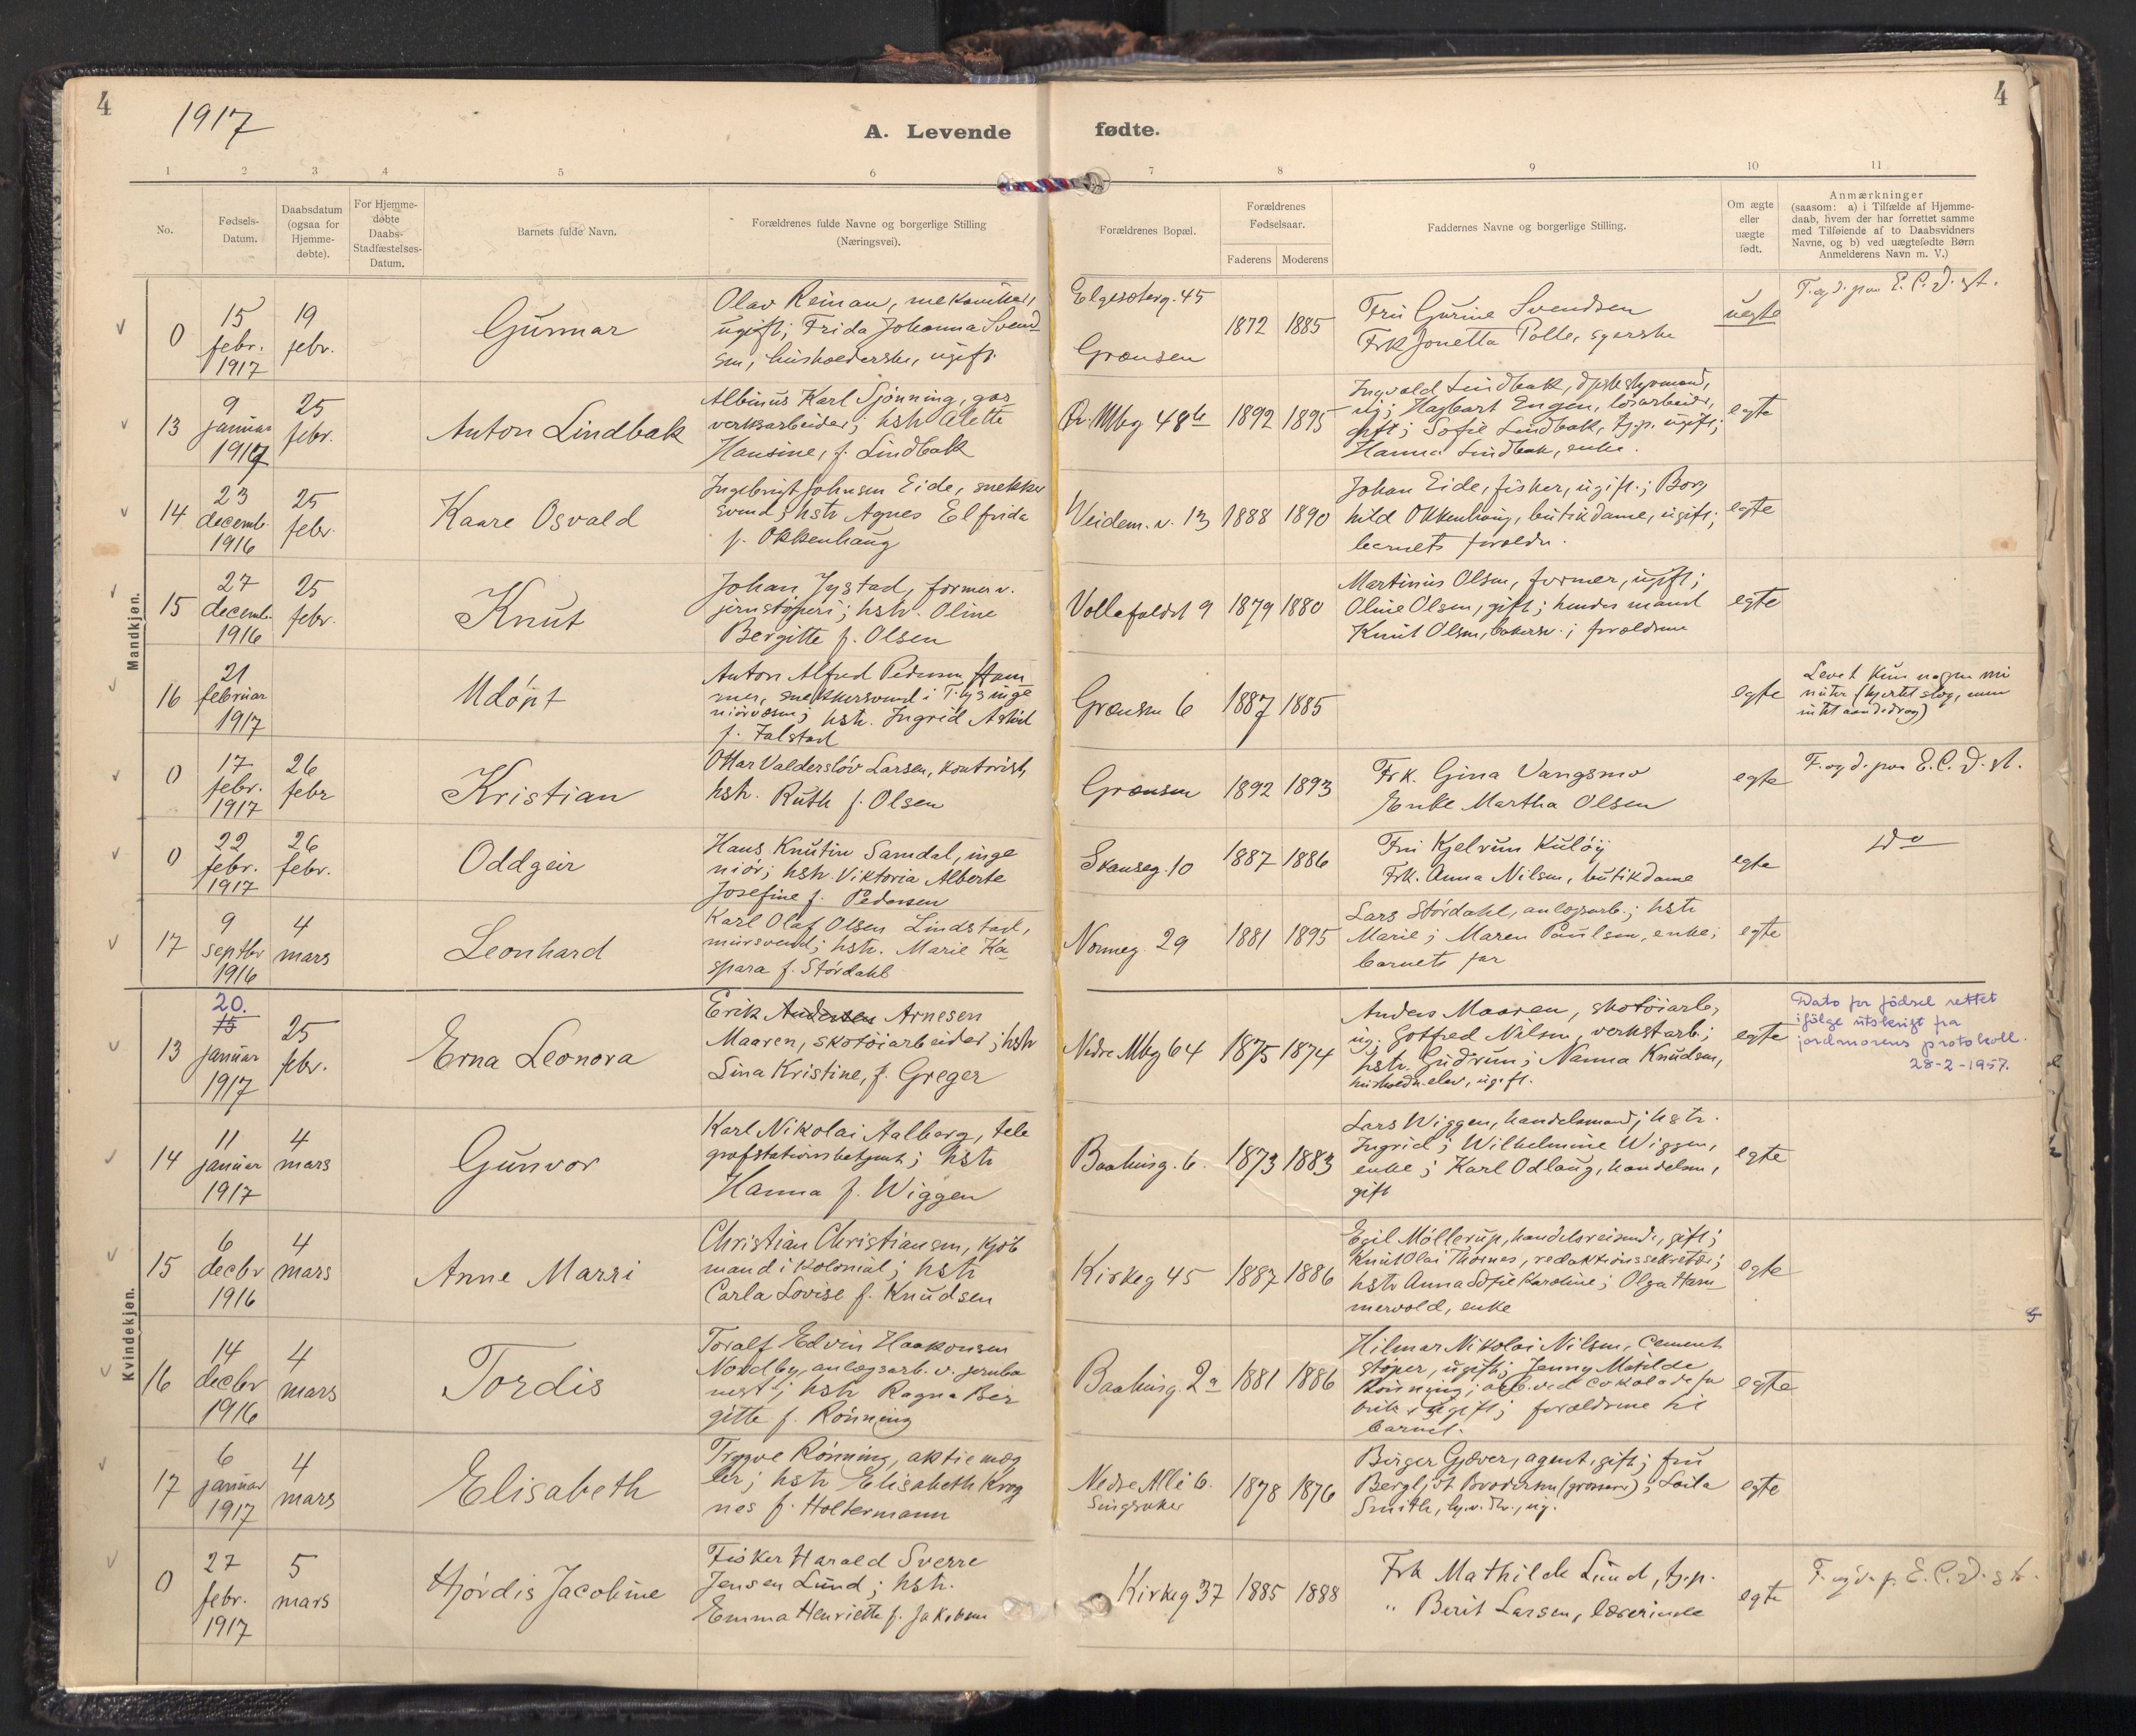 4
1917
A. Levende fødte.
4
1 2 3 4 5 6 7 8 9 10 11
No.
Fødsels-
Datum.
Daabsdatum
(ogsaa for
Hjemme-
døbte).
For Hjemme-
døbte
Daabs-
Stadfæstelses-
Datum.
Barnets fulde Navn.
Forældrenes fulde Navne og borgerlige Stilling
(Næringsvei).
Forældrenes Bopæl.
Forældrenes
Fødselsaar.
Faderens Moderens
Faddernes Navne og borgerlige Stilling.
Om ægte
eller
uægte
født.
Anmærkninger
(saasom: a) i Tilfælde af Hjemme-
daab, hvem der har forrettet samme
med Tilføiende af to Daabsvidners
Navne, og b) ved uægtefødte Børn
Anmelderens Navn m. V.)
Mandkjøn.
0
15
febr.
1917
19
febr.
Gunnar
Olav Reinan, mekaniker,
ugift; Frida Johanna Svend
sen, husholderske, ugift
Elgesæterg. 45
Grænsen
1872 1885
Fru Gurine Svendsen
Frk Jonetta Polle, syerske
uegte
F. og d. paa E. C. D. st.
13
9
januar
1917
25
febr.
Anton Lindbak
Albinus Karl Sjønning, gas
verksarbeider; hstr Alette
Hansine, f. Lindbak
Øv. Mbg 48b
1892 1895
Ingvald Lindbak,
ug; Hagbart Engen, løsarbeider,
gift; Sofie Lindbak, tj.p. ugift;
Hanna Lindbak, enke.
egte
14
23
decemb.
1916
25
febr.
Kaare Osvald
Ingebrigt Johnsen Eide, snekker
svend; hstr Agnes Elfrida
f. Okkenhaug
Veidem. v. 13
1888 1890
Johan Eide, fisker, ugift; Borg
hild Okkenhaug, butikdame, ugift;
barnets forældre.
egte
15
27
decemb.
1916
25
febr.
Knut
Johan Jystad, former v.
jernstøperi; hstr. Oline
Bergitte f. Olsen
Vollafaldet 9
1879 1880
Martinus Olsen, former, ugift;
Oline Olsen, gift; hendes mand
Knut Olsen, bakersv.; forældrene
egte
16
21
februar
1917
Udøpt
Anton Alfred Pedersen Ham
mer, snekkersvend i T.hjs inge
niørvæsen; hstr. Ingrid Astrid
f. Falstad
Grænsen 6
1887 1885
egte
Levet kun nogen mi
nuter (hjertet slog, men
intet aandedrag)
0
17
febr.
1917
26
febr
Kristian
Ottar Valdersløv Larsen, kontorist,
hstr. Ruth f. Olsen
Grænsen
1892 1893
Frk. Gina Vangsmo
Enke Martha Olsen
egte
F. og d. paa E. C. D. st.
0
22
febr.
1917
26
febr.
Oddgeir
Hans Knutin Samdal, inge
niør; hstr. Viktoria Alberte
Josefine f. Pedersen
Skanseg. 10
1887 1886
Fru Kjelrun Kuløy
Frk. Anna Nilsen, butikdame
egte
Do
17
9
septbr
1916
4
mars
Leonhard
Karl Olaf Olsen Lindstad,
mursvend; hstr. Marie Ka-
spara f. Størdahl
Nonneg. 29
1881 1895
Lars Størdahl, anlægsarb.; hstr
Marie; Maren Paulsen, enke;
barnets far
egte
Kvindekjøn.
13
20.
15
januar
1917
25
febr.
Erna Leonora
Erik Andersen Arnesen
Maaren, skotøiarbeider; hstr
Lina Kristine, f. Greger
Nedre Mbg 64
1875 1874
Anders Maaren, skotøiarb,
ug; Gotfred Nilsen, verkstarb;
hstr. Gudrun; Nanna Knudsen,
husholdn. elev, ugift.
egte
Dato for fødsel rettet
ifølge utskrift fra
jordmorens protokoll.
28-2-1957.
14
11
januar
1917
4
mars
Gunvor
Karl Nikolai Aalberg, tele
grafstationsbetjent; hstr
Hanna f. Wiggen
Baahusg. 6.
1873 1883
Lars Wiggen, handelsmand; hstr.
Ingrid; Wilhelmine Wiggen,
enke; Karl Odlaug, handelsm,
gift
egte
15
6
decbr
1916
4
mars
Anne Marri
Christian Christiansen, kjøb
mand i kolonial; hstr
Carla Lovise f. Knudsen
Kirkeg 45
1887 1886
Egil Møllerup, handelsreisende, gift;
Knut Olai Thornes, redaktionssekretær;
hstr Anna Sofie Karoline; Olga Ham
mervold, enke
egte
16
14
decbr
1916
4
mars
Tordis
Toralf Edvin Haakonsen
Nordby, anlægsarb. v. jernba
nest; hstr Ragna Bir
gitte f. Rønning
Baahusg. 2a
1881 1886
Hilmar Nikolai Nilsen, Cement
støper, ugift; Jenny Matilde
Rønning; arb. ved cokoladefa
brik, ugift; forældrene til
barnet.
egte
17
6
januar
1917
4
mars
Elisabeth
Trygve Rønning, aktiemæg
ler; hstr Elisabeth Krog
nes f. Holtermann
Nedre Allé 6.
Singsaker
1878 1876
Birger Gjæver, agent, gift; fru
Bergljot Brodersen (grosserer); Laila
Smith, ug.
egte
0
27
febr.
1917
5
mars
Hjørdis Jacobine
Fisker Harald Sverre
Jensen Lund; hstr.
Emma Henriette f. Jakobsen
Kirkeg 37
1885 1888
Frk Mathilde Lund, tj.p.
" Berit Larsen, lærerinde
egte
F. og d. p. E. C. D. st.